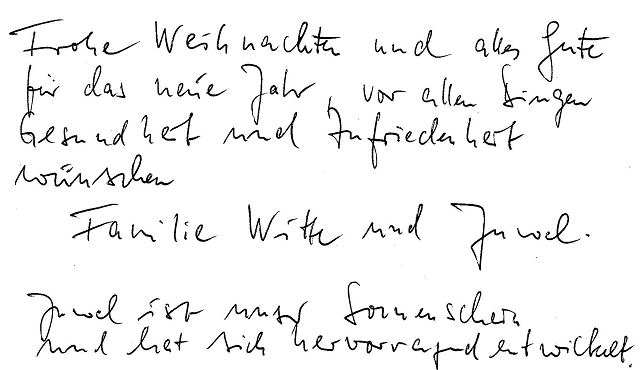 Frohe Weihnachten und alles Gute
für das neue Jahr, vor allen Dingen
Gesundheit und Zufriedenheit
wünschen
Familie Witte und Juwel.
Juwel ist unser Sonnenschein
und hat sich hervorragend entwickelt.